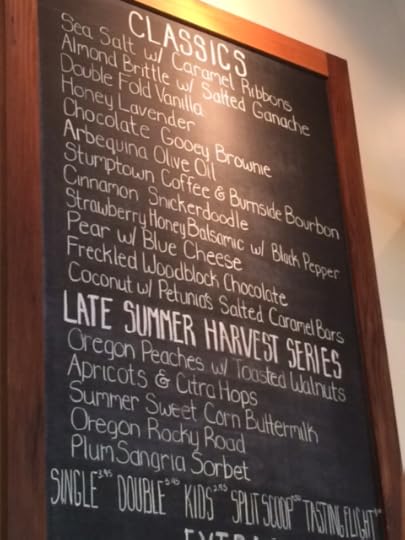 CLASSICS
Sea Salt w/ Caramel Ribbons
Almond Brittle w/ Salted Ganache
Double Fold Vanilla
Honey Lavender
Chocolate Gooey Brownie
Arbequina Olive Oil
Stumptown Coffee & Burnside Bourbon
Cinnamon Snickerdoodle
Strawberry Honey Balsamic w/ Black Pepper
Pear w/ Blue Cheese
Freckled Woodblock Chocolate
Coconut w/ Petunia's Salted Caramel Bars
LATE SUMMER HARVEST SERIES
Oregon Peaches w/ Toasted Walnuts
Apricots & Citra Hops
Summer Sweet Corn Buttermilk
Oregon Rocky Road
Plum Sangria Sorbet
SINGLE DOUBLE KIDS SPLIT SCOOP TASTING FLIGHT